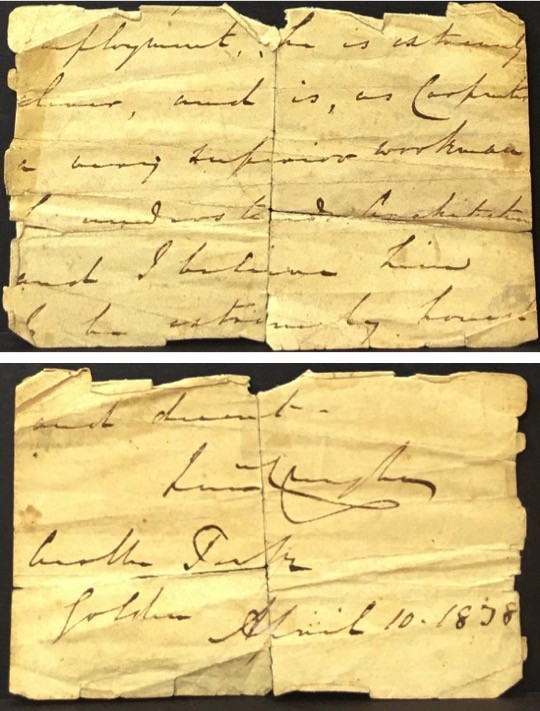 employment, he is extremely
clever, and is, as Carpenter
a very superior workman
he understands Architecture
and I believe him
to be extremely honest
and decent.
Castle Park
Golden April 10. 1838